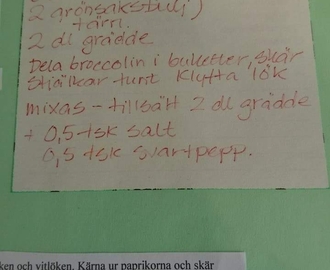 2 grönsaksbulj)
tärn.
2 dl grädde
Dela broccolin i buketter, skär
stjälkar tunt Klyfta lök
mixas - tillsätt 2 dl grädde
+ 0,5 tsk salt
0,5 tsk svartpepp.
ken och vitlöken. Kärna ur paprikorna och skär